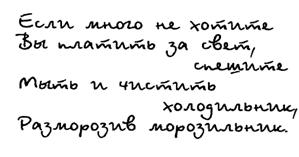 Если много не хотите
Вы платить за свет,
спешите
Мыть и чистить
холодильник,
Разморозив морозильник.